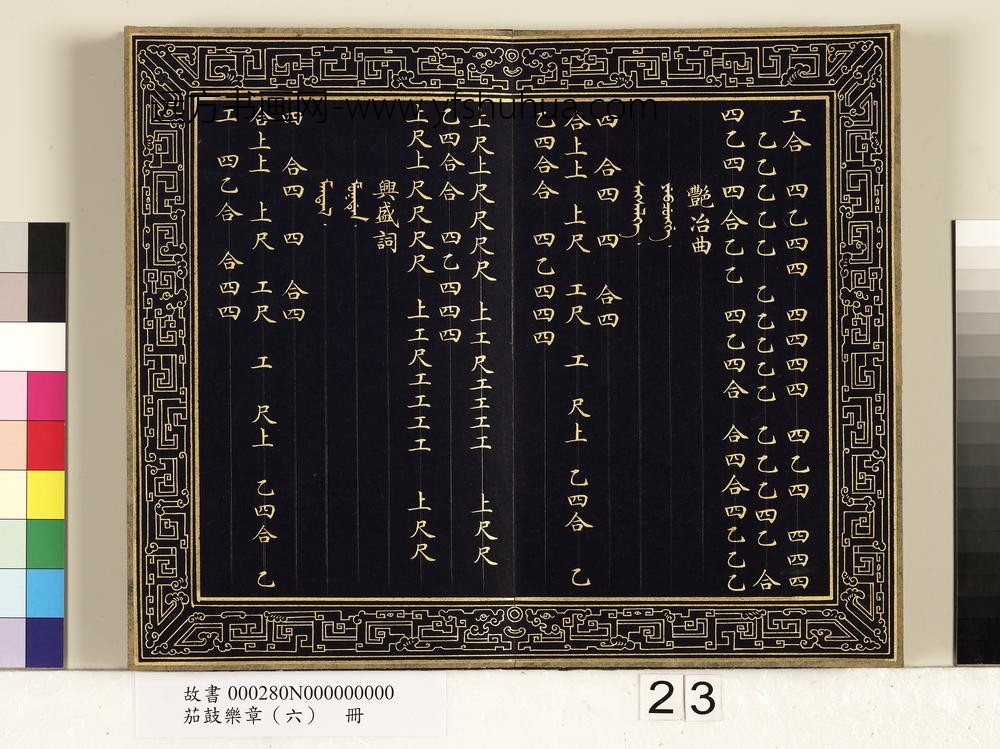 工合 四乙四四 四四四四 四乙四 四四四
乙乙乙乙乙 乙乙乙乙乙 乙乙乙四乙 合
四乙四四合乙乙 四乙四合 合四合四乙乙乙
艷冶曲
四 合四 四 合四
合上上 上尺 工尺 工 尺上 乙四合 乙
乙四合合 四乙四四四
工尺上尺尺尺尺 上工尺工工工工 上尺尺
四合合 四乙四四四
上尺上尺尺尺尺 上工尺工工工工 上尺尺
興盛詞
四 合四 四 合四
合上上 上尺 工尺 工 尺上 乙四合 乙
工 四乙合 合四四
东方书画网-www.yfshuhua.com
故書 000280N000000000
茄鼓樂章（六） 冊
23